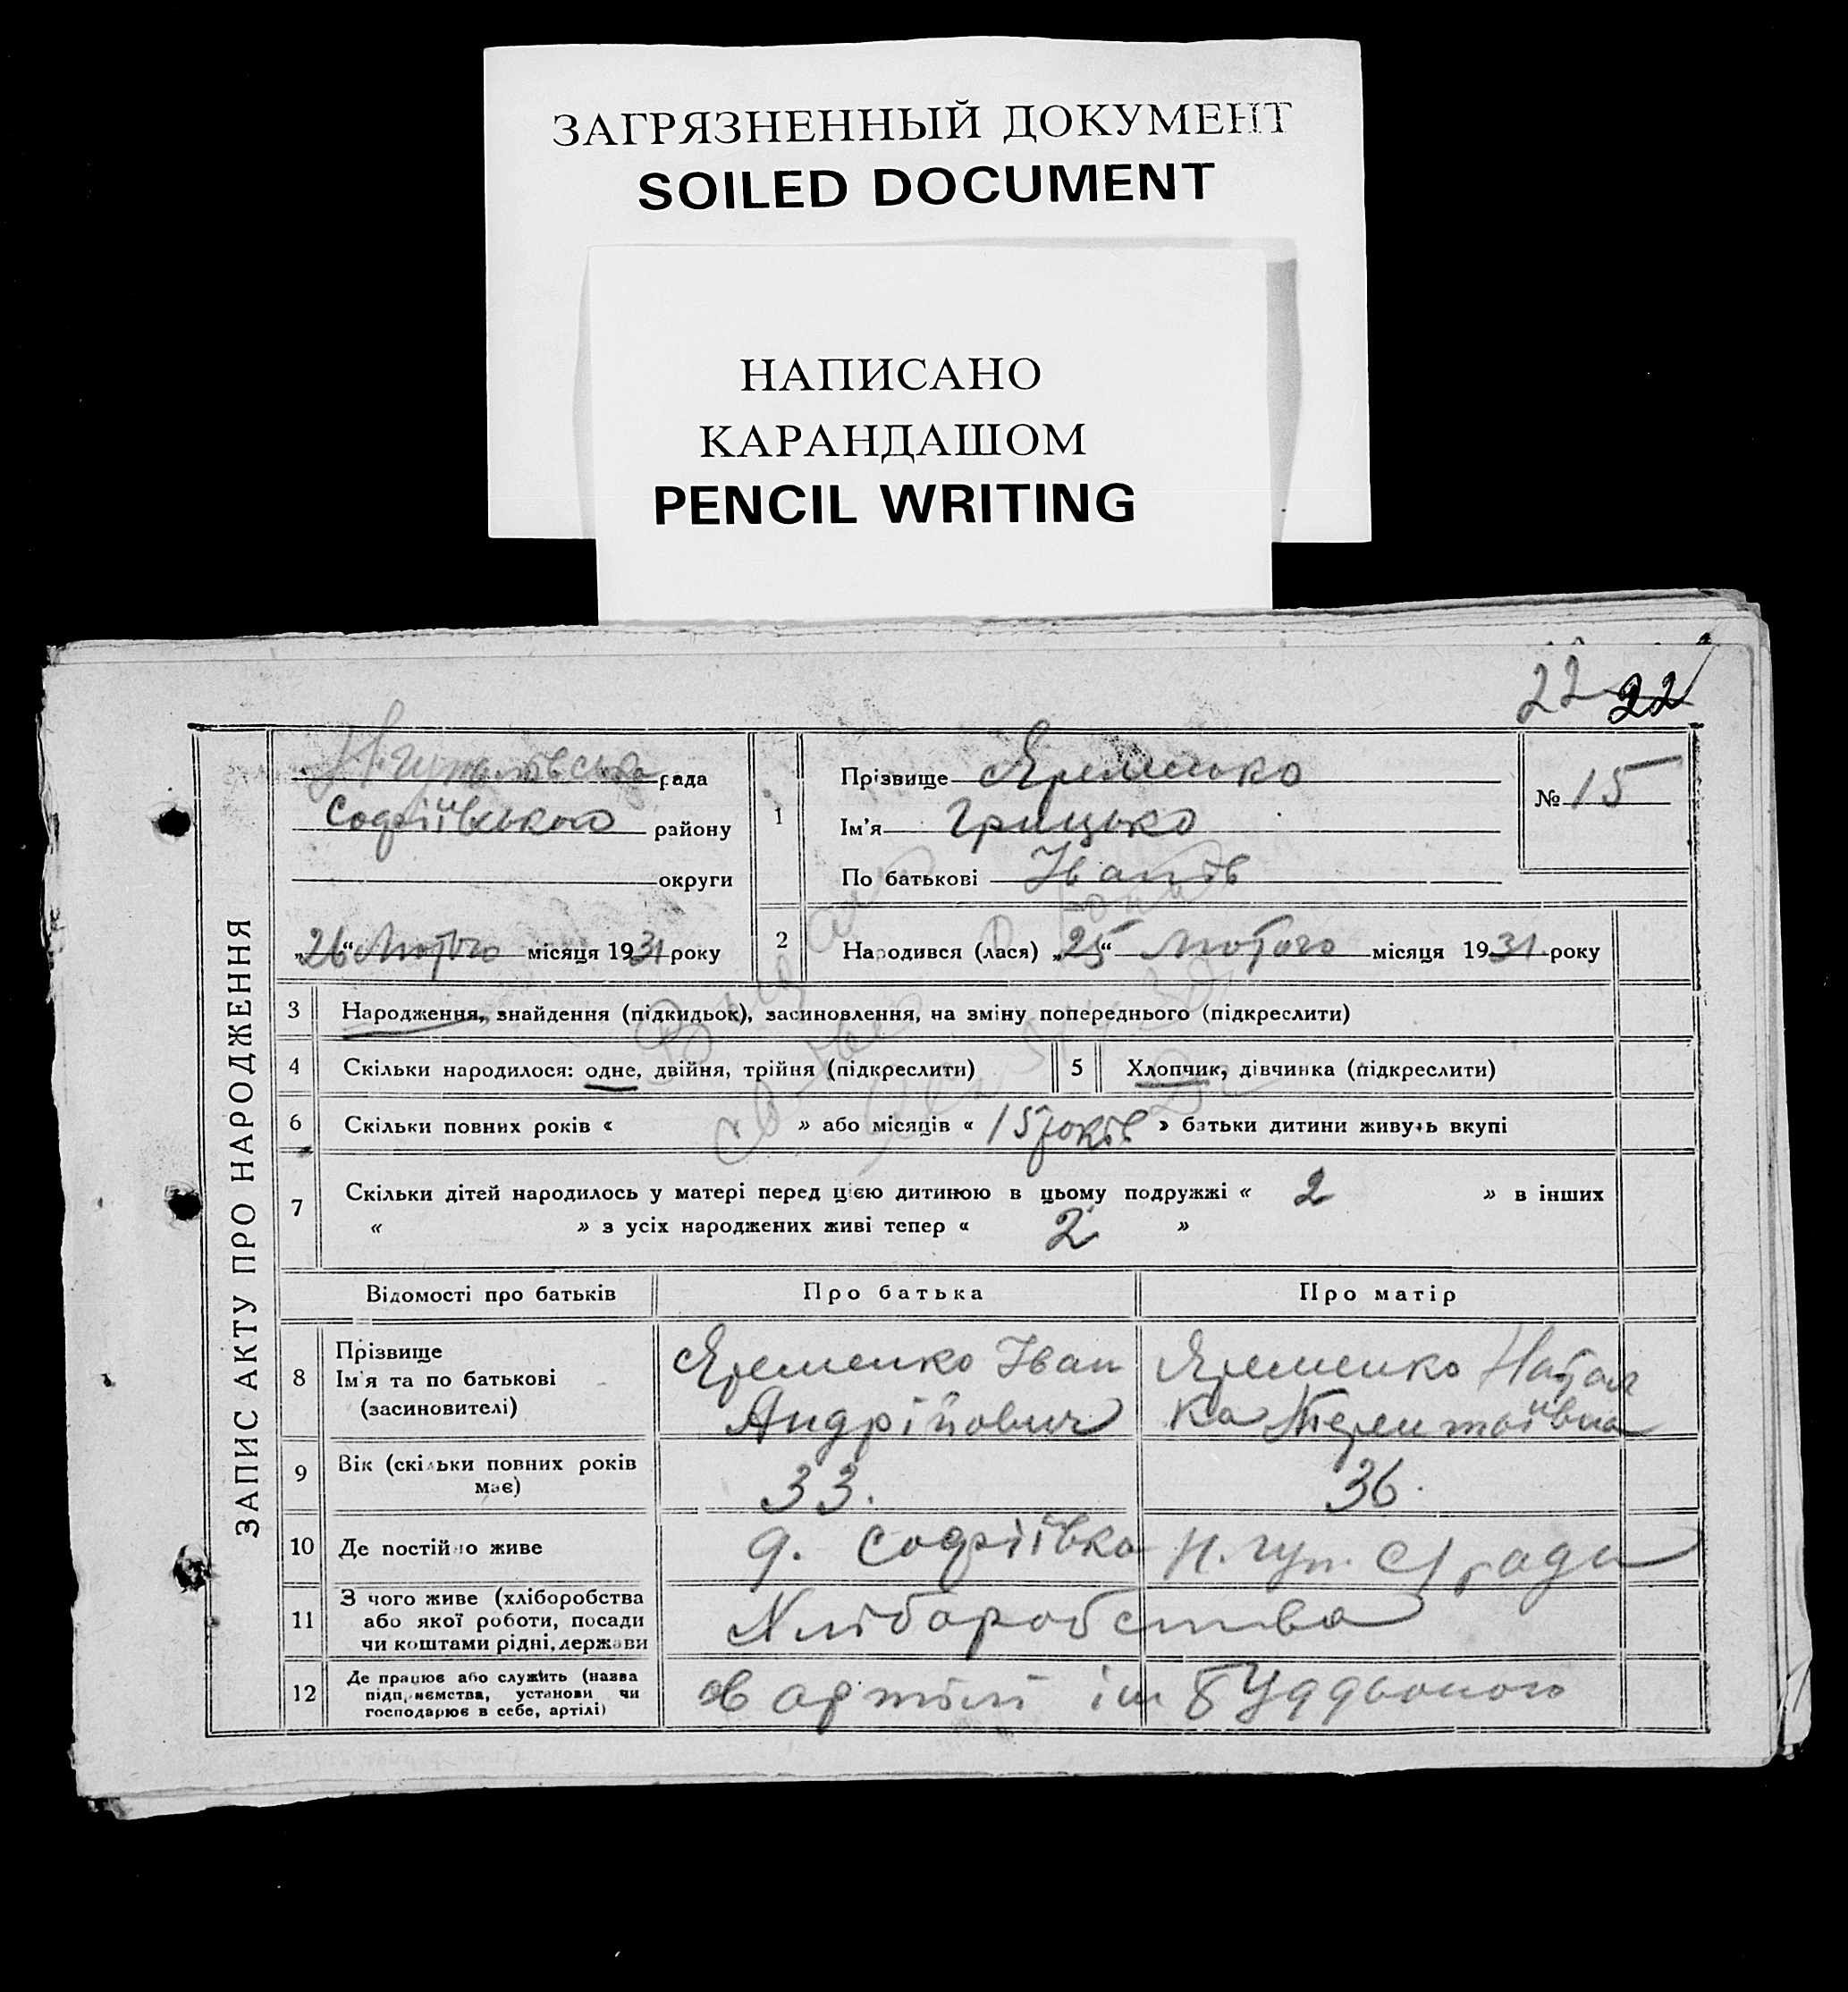 ЗАГРЯЗНЕННЫЙ ДОКУМЕНТ
SOILED DOCUMENT
НАПИСАНО
КАРАНДАШОМ
PENCIL WRITING
22 22
ЗАПИС АКТУ ПРО НАРОДЖЕННЯ
рада
Софіївського району
округи
„26“ Лютого місяця 1931 року
1
Прізвище Яременко
Ім'я Грицько
По батькові Іванів
№ 15
2 Народився (лася) „25“ Лютого місяця 1931 року
3 Народження, знайдення (підкидьок), засиновлення, на зміну попереднього (підкреслити)
4 Скільки народилося: одне, двійня, трійня (підкреслити) 5 Хлопчик, дівчинка (підкреслити)
6 Скільки повних років « » або місяців « 15 років » батьки дитини живуть вкупі
7 Скільки дітей народилось у матері перед цією дитиною в цьому подружжі « 2 » в інших
« » з усіх народжених живі тепер « 2 »
Відомості про батьків Про батька Про матір
8 Прізвище
Ім'я та по батькові
(засиновителі)
Яременко Іван
Андрійович
Яременко Натал
ка
9 Вік (скільки повних років
має)
33. 36.
10 Де постійно живе
Софіївка Н. С/ради
11 З чого живе (хліборобства
або якої роботи, посади
чи коштами рідні, держави
Хліборобства
12 Де працює або служить (назва
підприємства, установи чи
господарює в себе, артілі)
в артілі ім Буддьоного